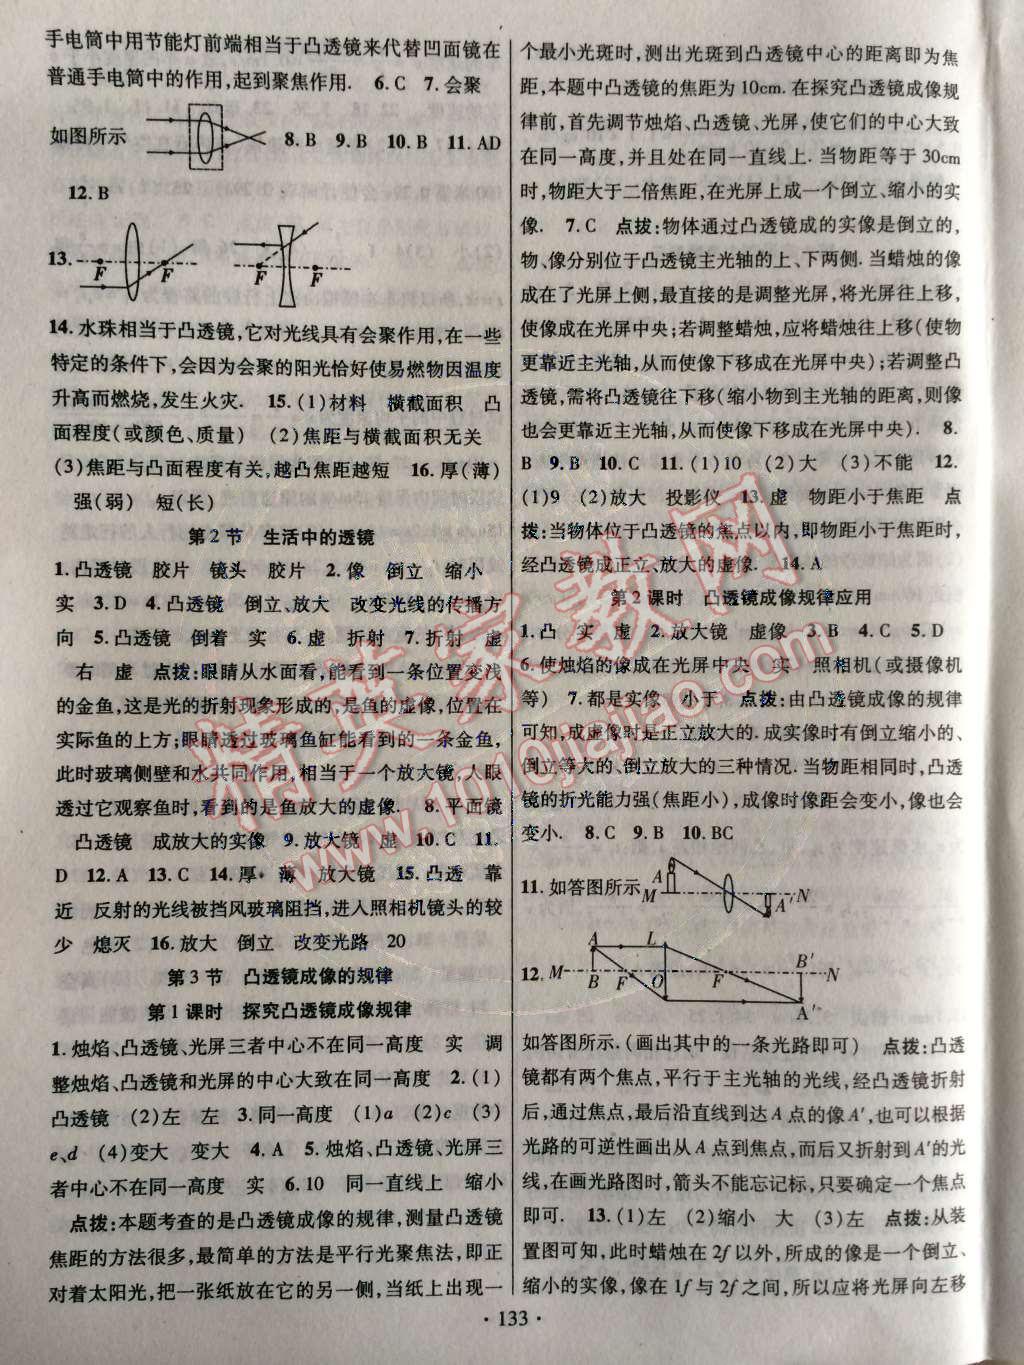 手电筒中用节能灯前端相当于凸透镜来代替凹面镜在
普通手电筒中的作用,起到聚焦作用. 6.C 7.会聚
如图所示 8.B 9.B 10.B 11.AD
12.B
13. F F F F
14.水珠相当于凸透镜,它对光线具有会聚作用,在一些
特定的条件下,会因为会聚的阳光恰好使易燃物因温度
升高而燃烧,发生火灾. 15.(1)材料 横截面积 凸
面程度(或颜色、质量) (2)焦距与横截面积无关
(3)焦距与凸面程度有关,越凸焦距越短 16.厚(薄)
强(弱) 短(长)
第2节 生活中的透镜
1.凸透镜 胶片 镜头 胶片 2.像 倒立 缩小
实 3.D 4.凸透镜 倒立、放大 改变光线的传播方
向 5.凸透镜 倒着 实 6.虚 折射 7.折射 虚
右 虚 点拨:眼睛从水面看,能看到一条位置变浅
的金鱼,这是光的折射现象形成的,是鱼的虚像,位置在
实际鱼的上方;眼睛透过玻璃鱼缸能看到的一条金鱼,
此时玻璃侧壁和水共同作用,相当于一个放大镜,人眼
透过它观察鱼时,看到的是鱼放大的虚像. 8.平面镜
凸透镜 成放大的实像 9.放大镜 虚 10.C 11.
D 12.A 13.C 14.厚 薄 放大镜 15.凸透 靠
近 反射的光线被挡风玻璃阻挡,进入照相机镜头的较
少 熄灭 16.放大 倒立 改变光路 20
第3节 凸透镜成像的规律
第1课时 探究凸透镜成像规律
1.烛焰、凸透镜、光屏三者中心不在同一高度 实 调
整烛焰、凸透镜和光屏的中心大致在同一高度 2.(1)
凸透镜 (2)左 左 3.同一高度 (1)a (2)c (3)
e、d (4)变大 变大 4.A 5.烛焰、凸透镜、光屏三
者中心不在同一高度 实 6.10 同一直线上 缩小
点拨:本题考查的是凸透镜成像的规律,测量凸透镜
焦距的方法很多,最简单的方法是平行光聚焦法,即正
对着太阳光,把一张纸放在它的另一侧,当纸上出现一
个最小光斑时,测出光斑到凸透镜中心的距离即为焦
距,本题中凸透镜的焦距为10cm.在探究凸透镜成像规
律前,首先调节烛焰、凸透镜、光屏,使它们的中心大致
在同一高度,并且处在同一直线上.当物距等于30cm
时,物距大于二倍焦距,在光屏上成一个倒立、缩小的实
像. 7.C 点拨:物体通过凸透镜成的实像是倒立的,
物、像分别位于凸透镜主光轴的上、下两侧.当蜡烛的像
成在了光屏上侧,最直接的是调整光屏,将光屏往上移,
使像成在光屏中央;若调整蜡烛,应将蜡烛往上移(使物
更靠近主光轴,从而使像下移成在光屏中央);若调整凸
透镜,需将凸透镜往下移(缩小物到主光轴的距离,则像
也会更靠近主光轴,从而使像下移成在光屏中央). 8.
B 9.B 10.C 11.(1)10 (2)大 (3)不能 12.
(1)9 (2)放大 投影仪 13.虚 物距小于焦距 点
拨:当物体位于凸透镜的焦点以内,即物距小于焦距时,
经凸透镜成正立、放大的虚像. 14.A
第2课时 凸透镜成像规律应用
1.凸 实 虚 2.放大镜 虚像 3.B 4.C 5.D
6.使烛焰的像成在光屏中央 实 照相机(或摄像机
等) 7.都是实像 小于 点拨:由凸透镜成像的规律
可知,成虚像时是正立放大的.成实像时有倒立缩小的、
倒立等大的、倒立放大的三种情况.当物距相同时,凸透
镜的折光能力强(焦距小),成像时像距会变小,像也会
变小. 8.C 9.B 10.BC
11.如答图所示 A M N A′
12. M A B F L O F B′ N A′
如答图所示.(画出其中的一条光路即可) 点拨:凸透
镜都有两个焦点,平行于主光轴的光线,经凸透镜折射
后,通过焦点,最后沿直线到达A点的像A′,也可以根据
光路的可逆性画出从A点到焦点,而后又折射到A′的光
线,在画光路图时,箭头不能忘记标,只要确定一个焦点
即可. 13.(1)左 (2)缩小 大 (3)左 点拨:从装
置图可知,此时蜡烛在2f以外,所成的像是一个倒立、
缩小的实像,像在1f与2f之间,所以应将光屏向左移
· 133 ·
精英家教网
www.1010jiajiao.com